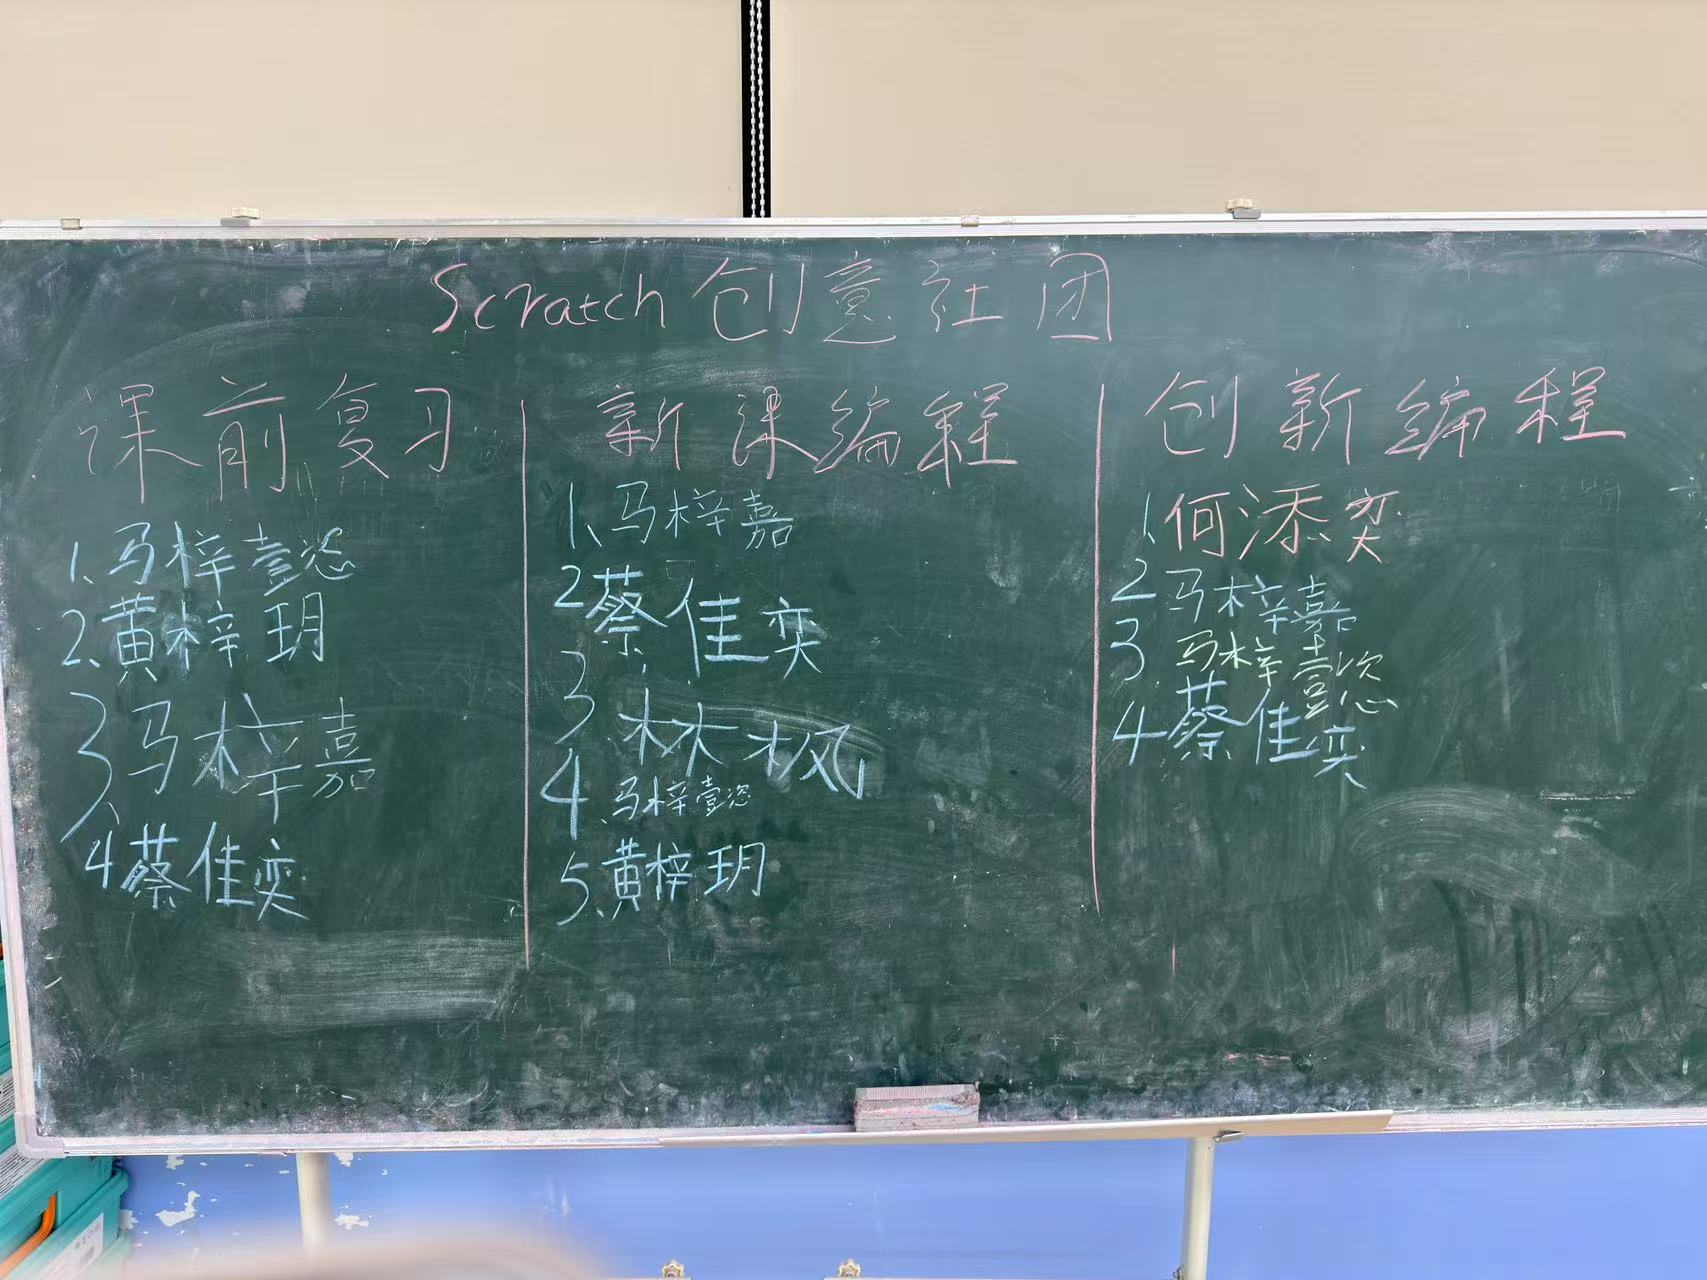 Scratch创意社团
课前复习
1、马梓壹恣
2、黄梓玥
3、马梓嘉
4蔡佳奕
新课编程
1、马梓嘉
2蔡佳奕
3林枫
4、马梓壹恣
5、黄梓玥
创新编程
1、何添奕
2马梓嘉
3马梓壹恣
4蔡佳奕